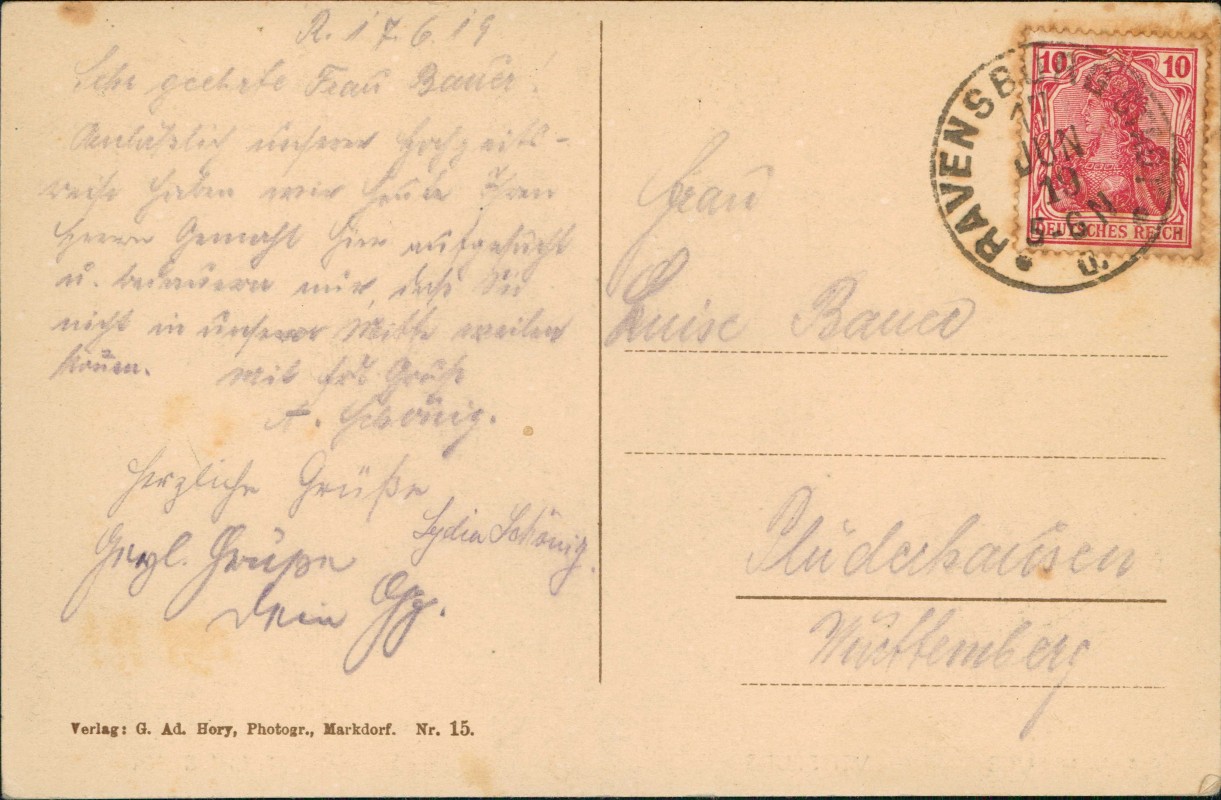 R. 17.6.19
Sehr geehrte Frau Bauer!
Anläßlich unserer Hochzeits-
reise haben wir heute Ihren
Herrn Gemahl hier aufgesucht
u. bedauern nur, daß Sie
nicht in unserer Mitte weilen
können. Mit frdl. Gruß
A. Schönig.
Herzliche Grüße
Lydia Schönig.
Herzl. Grüße
Dein
Verlag: G. Ad. Hory, Photogr., Markdorf. Nr. 15.
10 10
DEUTSCHES REICH
RAVENSBURG
17
JUN
19
5-6 N
Frau
Luise Bauer
Plüderhausen
Württemberg